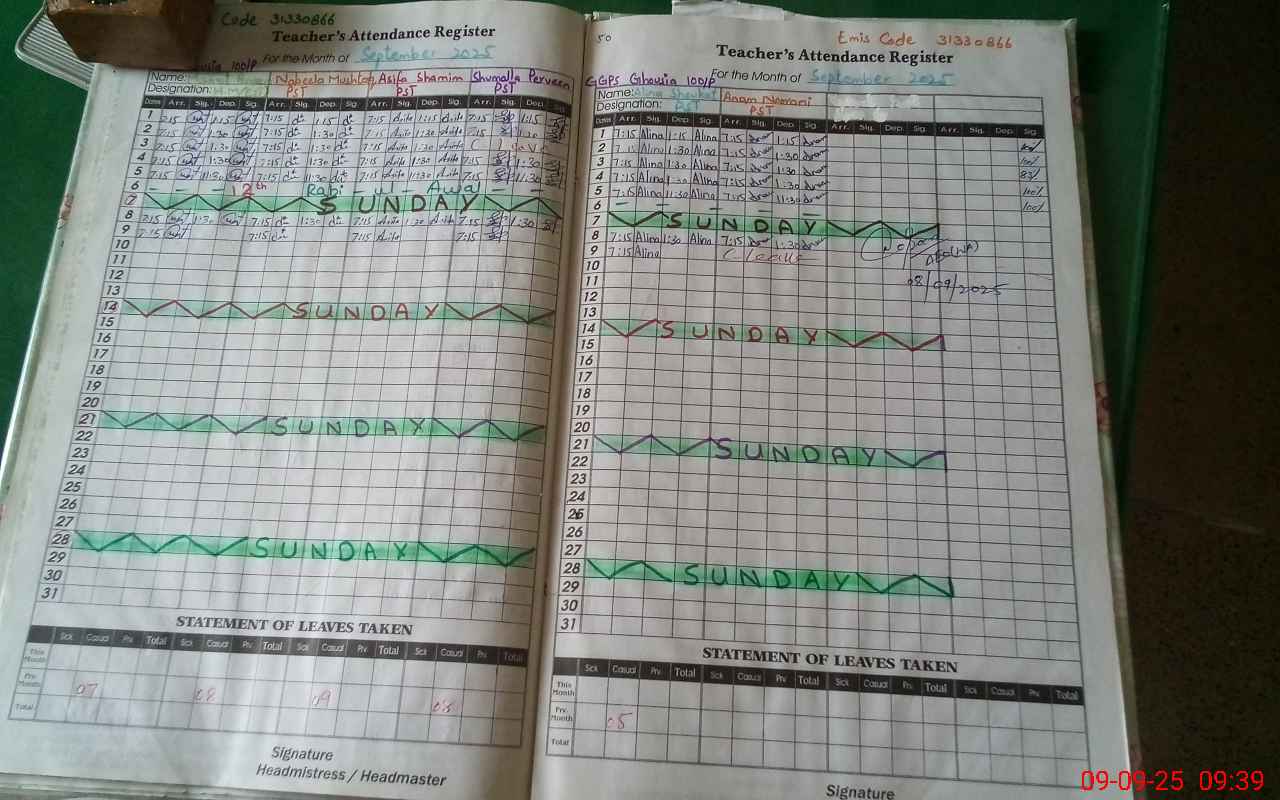 Code 31330866
Teacher's Attendance Register
For the Month of September 2025
100/P
Name: Nabeela Mushtaq Asifa Shamim Shumaila Perveen
Designation: PST PST PST
Dates Arr. Sig. Dep. Sig. Arr. Sig. Dep. Sig. Arr. Sig. Dep. Sig. Arr. Sig. Dep. Sig.
1 7:15 1:15 7:15 1:15 7:15 Asifa 1:15 Asifa 7:15 1:15
2 7:15 1:30 7:15 1:30 7:15 Asifa 1:30 Asifa 7:15 1:30
3 7:15 1:30 7:15 1:30 7:15 Asifa 1:30 Asifa C Leave
4 7:15 1:30 7:15 1:30 7:15 Asifa 1:30 Asifa 7:15 1:30
5 7:15 11:30 7:15 11:30 7:15 Asifa 11:30 Asifa 7:15 11:30
6 12th Rabi - ul - Awal
7 SUNDAY
8 7:15 1:30 7:15 1:30 7:15 Asifa 1:30 Asifa 7:15 1:30
9 7:15 7:15 7:15 Asifa 7:15
10
11
12
13
14 SUNDAY
15
16
17
18
19
20
21 SUNDAY
22
23
24
25
26
27
28 SUNDAY
29
30
31
STATEMENT OF LEAVES TAKEN
Sick Casual Prv. Total Sick Casual Prv. Total Sick Casual Prv. Total Sick Casual Prv. Total
This Month
Prv. Month 07 08 09 08
Total
Signature
Headmistress / Headmaster
50
Emis Code 31330866
Teacher's Attendance Register
GGPS Ghousia 100/P For the Month of September 2025
Name: Alina Shoukat Anam Namani
Designation: PST PST
Dates Arr. Sig. Dep. Sig. Arr. Sig. Dep. Sig. Arr. Sig. Dep. Sig. Arr. Sig. Dep. Sig.
1 7:15 Alina 1:15 Alina 7:15 1:15
2 7:15 Alina 1:30 Alina 7:15 1:30
3 7:15 Alina 1:30 Alina 7:15 1:30
4 7:15 Alina 1:30 Alina 7:15 1:30
5 7:15 Alina 11:30 Alina 7:15 11:30
6
7 SUNDAY
8 7:15 Alina 1:30 Alina 7:15 1:30
9 7:15 Alina C-Leave
10
11 08/09/2025
12
13
14 SUNDAY
15
16
17
18
19
20
21 SUNDAY
22
23
24
25
26
27
28 SUNDAY
29
30
31
STATEMENT OF LEAVES TAKEN
Sick Casual Prv. Total Sick Casual Prv. Total Sick Casual Prv. Total Sick Casual Prv. Total
This Month
Prv. Month 05
Total
Signature
09-09-25 09:39